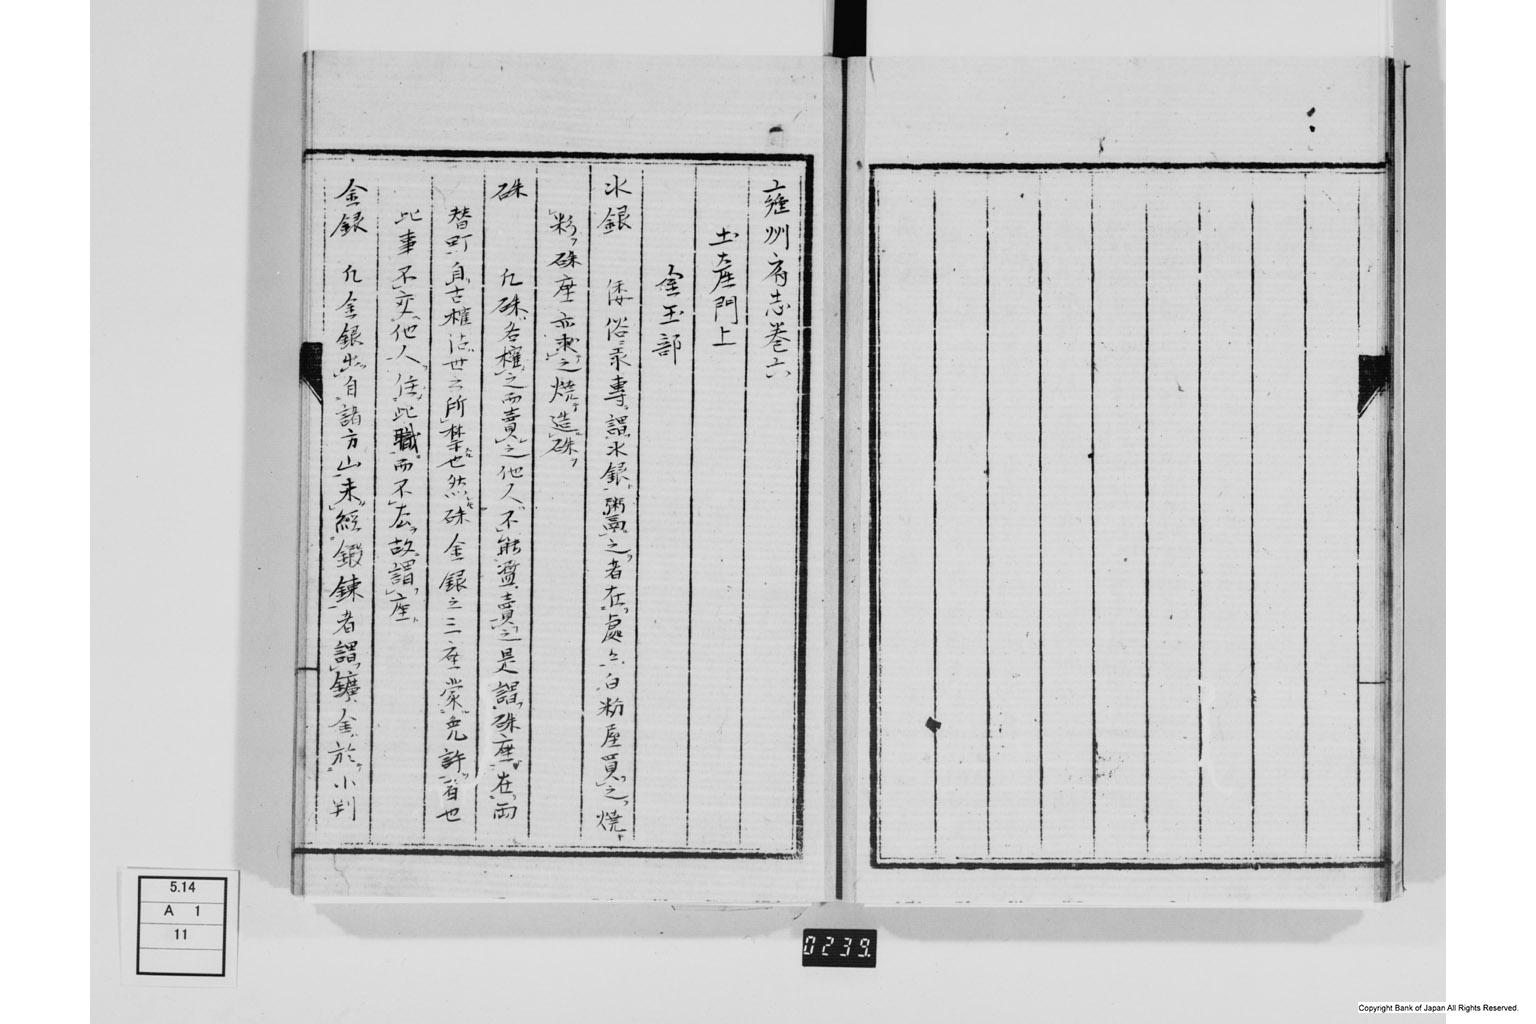 雍州府志巻六
土産門上
金玉部
水銀 倭俗汞專謂水銀粥之者在處々白粉屋買之燒
粉硃座亦求之燒造硃
硃 凡硃各権之而賣之他人不能盗賣之是謂硃座在両
替町自古権法世之所禁也然硃金銀之三座蒙免許者也
此事不交他人住此職而不去故謂座
金銀 凡金銀出自諸方山未經鍛錬者謂鑛金於小判
5.14
A 1
11
0239.
Copyright Bank of Japan All Rights Reserved.